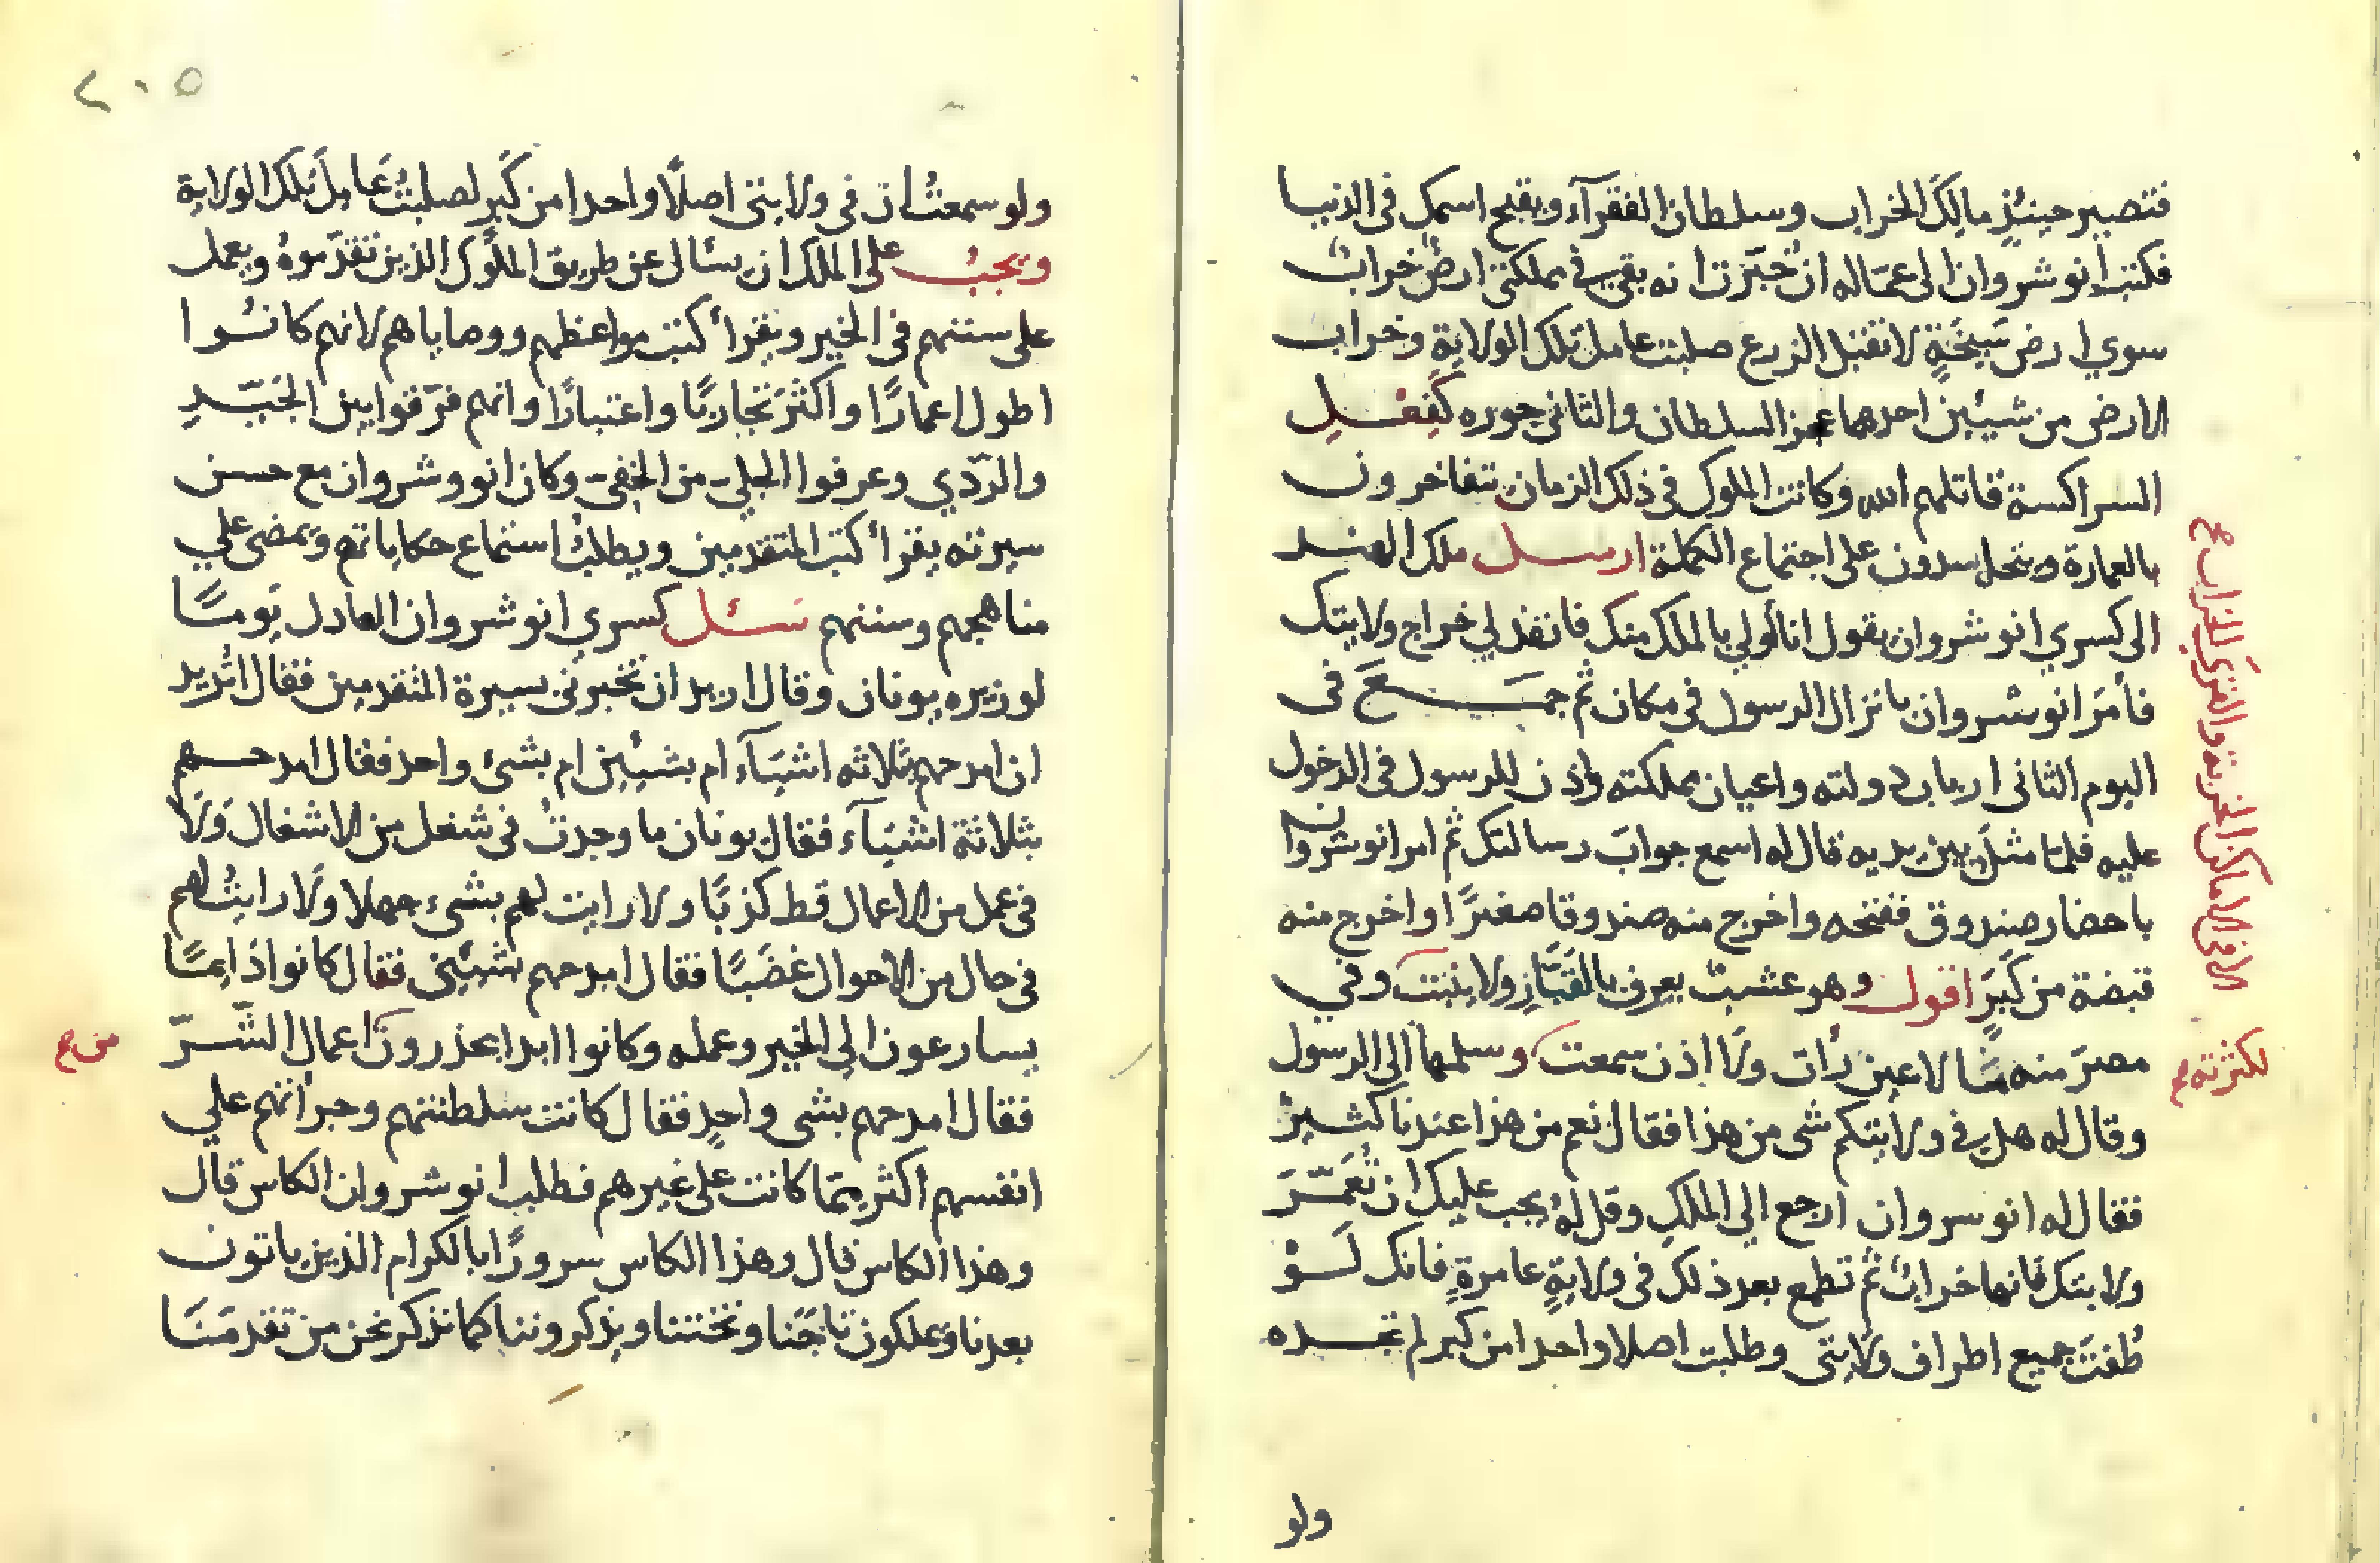 فتصير حينئذٍ مالِكَ الخراب وسلطان الفقرآء ويقبح اسمك فى الدنيا
فكتب انوشروان الى عمّاله ان خبّرت انه بقي في مملكتى ارضٌ خرابٌ
سوي ارض سَبِخَةٍ لا تقبل الزرع صلبت عامل تلك الولايةِ وخراب
الارض من شيئين احدهما عجز السلطان والثانى جوره كَفِعْلِ
السراكسة قاتلهم الله وكانت الملوك فى ذلك الزمان يتفاخرون
بالعمارة ويتحاسدون على اجتماع الكملة ارسل ملك الهند
الى كسري انوشروان يقول انا أولي بالملك منك فانفذ لي خراج ولايتك
فأمَرَ انوشروان بانزال الرسول فى مكان ثم جمَعَ فى
اليوم الثانى ارباب دولته واعيان مملكته واذن للرسول فى الدخول
عليه فلمّا مثلَ بين يديه قال له اسمع جوابَ رسالتك ثم امر انوشروان
باحضار صندوق ففتحه واخرج منه صندوقا صغيرًا واخرج منه
قبضة من كَبَرٍ اقول وهو عشبٌ يعرف بالقَبَّارِ ولا ينبت وفي
مصرَ منه مَا لا عين رأت ولا اذن سمعت وسلمها الى الرسول
لكثرته صح
وقال له هل في ولايتكم شى من هذا فقال نعم من هذا عندنا كثيرٌ
فقال له انوسروان ارجع الي الملكِ وقل لهُ يجب عليك ان تُعَمِّرَ
ولايتك فانها خرابٌ ثم تطمع بعد ذلك فى ولايةٍ عامرةٍ فانك لَوْ
طُفتَ جميع اطراف ولايتى وطلبت اصلا واحدا من كبر لم تجده
ولو
٢٠٥
ولو سمعتُ ان فى ولايتى اصلًا واحدا من كَبَرٍ لصلبتُ عامِلَ تلك الولاية
ويجبُ على الملك ان يسأل عن طريق الملوك الذين تقدّموهُ ويعمل
على سننهم فى الخير ويقرأ كتب مواعظهم ووصاياهم لانهم كانُوا
اطول اعمارًا واكثرَ تجاربًا واعتبارًا وانهم فرّقوا بين الجَيّدِ
والرّدي وعرفوا الجلي من الخفى وكان انووشروان مع حسن
سيرته يقرأ كتب المتقدمين ويطلبُ استماع حكاياتهم ويمضى علي
مناهجهم وسننهم سئل كسري انوشروان العادل يومًا
لوزيره يونان وقال اريد ان تخبرنى سيرة المتقدمين فقال اتُريد
ان امدحهم بثلاثه اشيَآء ام بشيئين ام بشئ واحد فقال امدحهم
بثلاثة اشيَآء فقال يونان ما وجدتُ فى شغل من الاشغال وَلَا
فى عمل من الاعمال قط كذبًا ولا رايت لهم بشىء جهلا ولا رايتُ لهم
فى حال من الاحوال غضَبًا فقال امدحهم بشيئين فقال كانوا دَايمًا
يسارعون الى الخير وعمله وكانوا ابدا يحذرون اعمال الشّرّ
من صح
فقال امدحهم بشى واحدٍ فقال كانت سلطنتهم وجرأتهم علي
انفسهم اكثر ممّا كانت على غيرهم فطلب انوشروان الكاس قال
وهذا الكاس قال وهذا الكاس سرورًا بالكرام الذين ياتون
بعدنا ويملكون تاجَنا وتختنا ويذكروننا كما نذكر نحن من تقدمَنَا